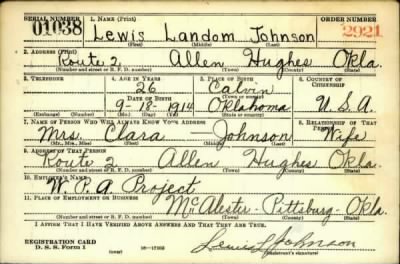 SERIAL NUMBER 1. NAME (Print) ORDER NUMBER
01038 Lewis Landom Johnson 2921
(First) (Middle) (Last)
2. ADDRESS (Print)
Route 2 Allen Hughes Okla.
(Number and street or R. F. D. number) (Town) (County) (State)
3. TELEPHONE 4. AGE IN YEARS 5. PLACE OF BIRTH 6. COUNTRY OF CITIZENSHIP
26 Calvin
DATE OF BIRTH (Town or county)
9-18-1914 Oklahoma U.S.A.
(Exchange) (Number) (Mo.) (Day) (Yr.) (State or country)
7. NAME OF PERSON WHO WILL ALWAYS KNOW YOUR ADDRESS 8. RELATIONSHIP OF THAT PERSON
Mrs. Clara Johnson Wife
(Mr., Mrs., Miss) (First) (Middle) (Last)
9. ADDRESS OF THAT PERSON
Route 2 Allen Hughes Okla.
(Number and street or R. F. D. number) (Town) (County) (State)
10. EMPLOYER'S NAME
W.P.A. Project
11. PLACE OF EMPLOYMENT OR BUSINESS
McAlester-Pittsburg-Okla.
(Number and street or R. F. D. number) (Town) (County) (State)
I AFFIRM THAT I HAVE VERIFIED ABOVE ANSWERS AND THAT THEY ARE TRUE.
REGISTRATION CARD
D. S. S. Form 1 (over) Lewis L Johnson